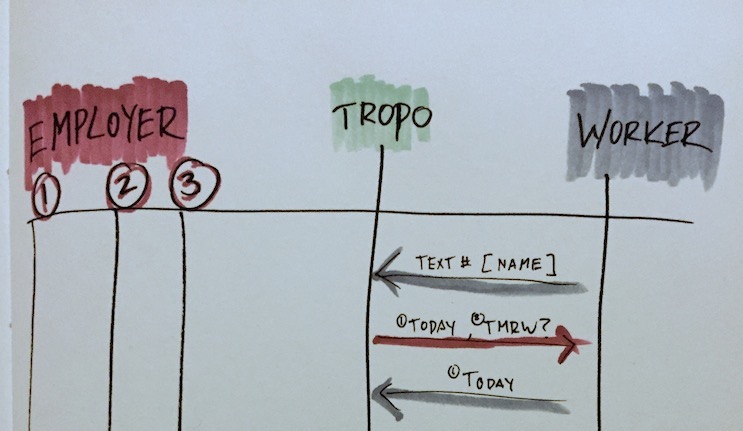 EMPLOYER
TROPO
WORKER
① ② ③
TEXT # [NAME]
①TODAY, ②TMRW?
①TODAY